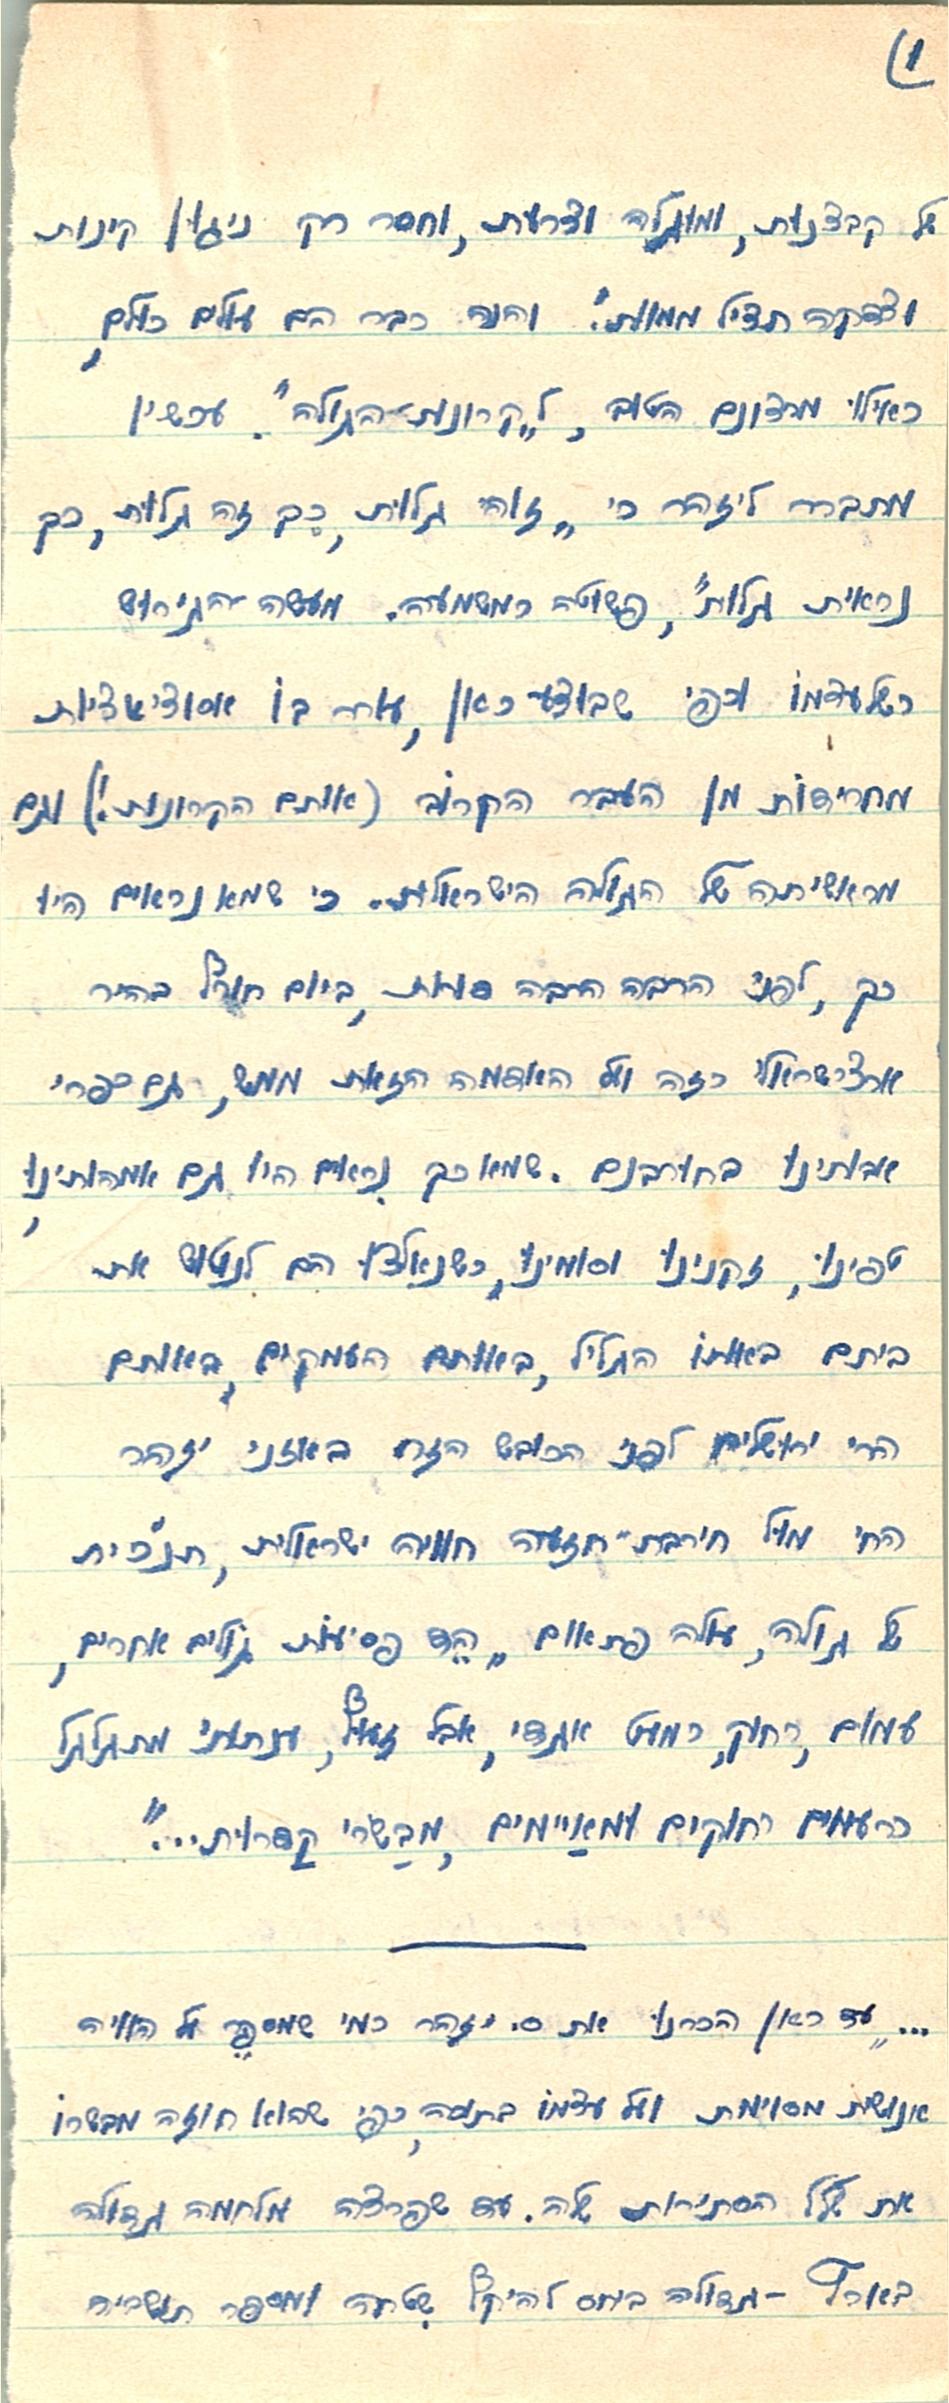 1)
של קבצנות, ומוגלה וצרעת, וחסר רק ניגון קינות
וצדקה תציל ממות." והנה כבר הם עולים כולם,
כאילו מרצונם הטוב, ל"קרונות-הגולה". עכשיו
מתברר ליזהר כי "זוהי גלות, כך זה גלות, כך
נראית גלות", פשוטה כמשמעה. מעשה הגירוש
כשלעצמו וכפי שבוצע כאן, עורר בו אסוציאציות
מחרידות מן העבר הקרוב (אותם הקרונות!) וגם
מראשיתה של הגולה הישראלית. כי שמא נראים היו
כך, לפני הרבה הרבה דורות, ביום חורף בהיר
ארצישראלי כזה ועל האדמה הזאת ממש, גם כפרי
אבותינו בחורבנם. שמא כך נראים היו גם אמהותינו,
טפינו, זקנינו וסומינו, כשנאלצו הם לנטוש את
ביתם באותו הגליל, באותם העמקים, באותם
הרי ירושלים לפני הכובש הזר. באוזני יזהר
החי מול חירבת-חזעה חוויה ישראלית, תנ"כית
של גולה, עולה פתאום "הֵד פסיעות גולים אחרים,
עמום, רחוק, כמעט אגדי, אבל זועף, ענתותי מתגלגל
כרעמים רחוקים ומאַויימים, מבַשׂרי קַדרות..."
..."עד כאן הכרנו את ס. יזהר כמי שמספֵּר על הוויה
אנושית מסוימת ועל עצמו בתוכה, כפי שהוא חוזה מבשרו
את שלל הסתירות שלה. עד שפרצה מלחמה גדולה
בארץ – גדולה ביחס להיקף שִטחה ומספר תושביה